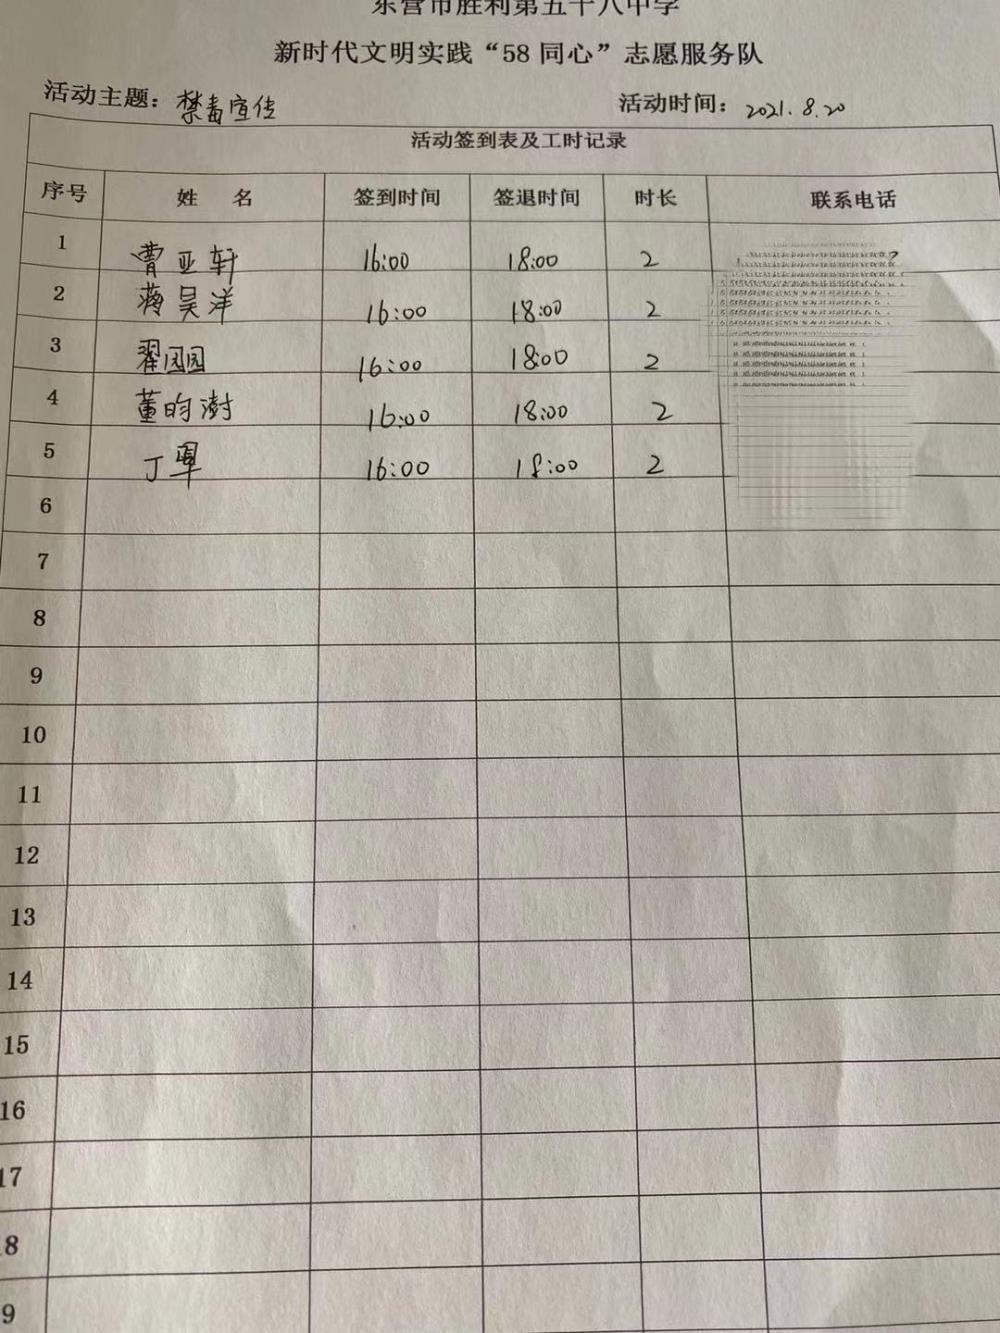 东营市胜利第五十八中学
新时代文明实践“58 同心”志愿服务队
活动主题：禁毒宣传 活动时间：2021.8.20
活动签到表及工时记录
序号 姓 名 签到时间 签退时间 时长 联系电话
1 曹亚轩 16:00 18:00 2
2 蒋昊洋 16:00 18:00 2
3 翟园园 16:00 18:00 2
4 董昀澍 16:00 18:00 2
5 丁 16:00 18:00 2
6
7
8
9
10
11
12
13
14
15
16
17
8
9